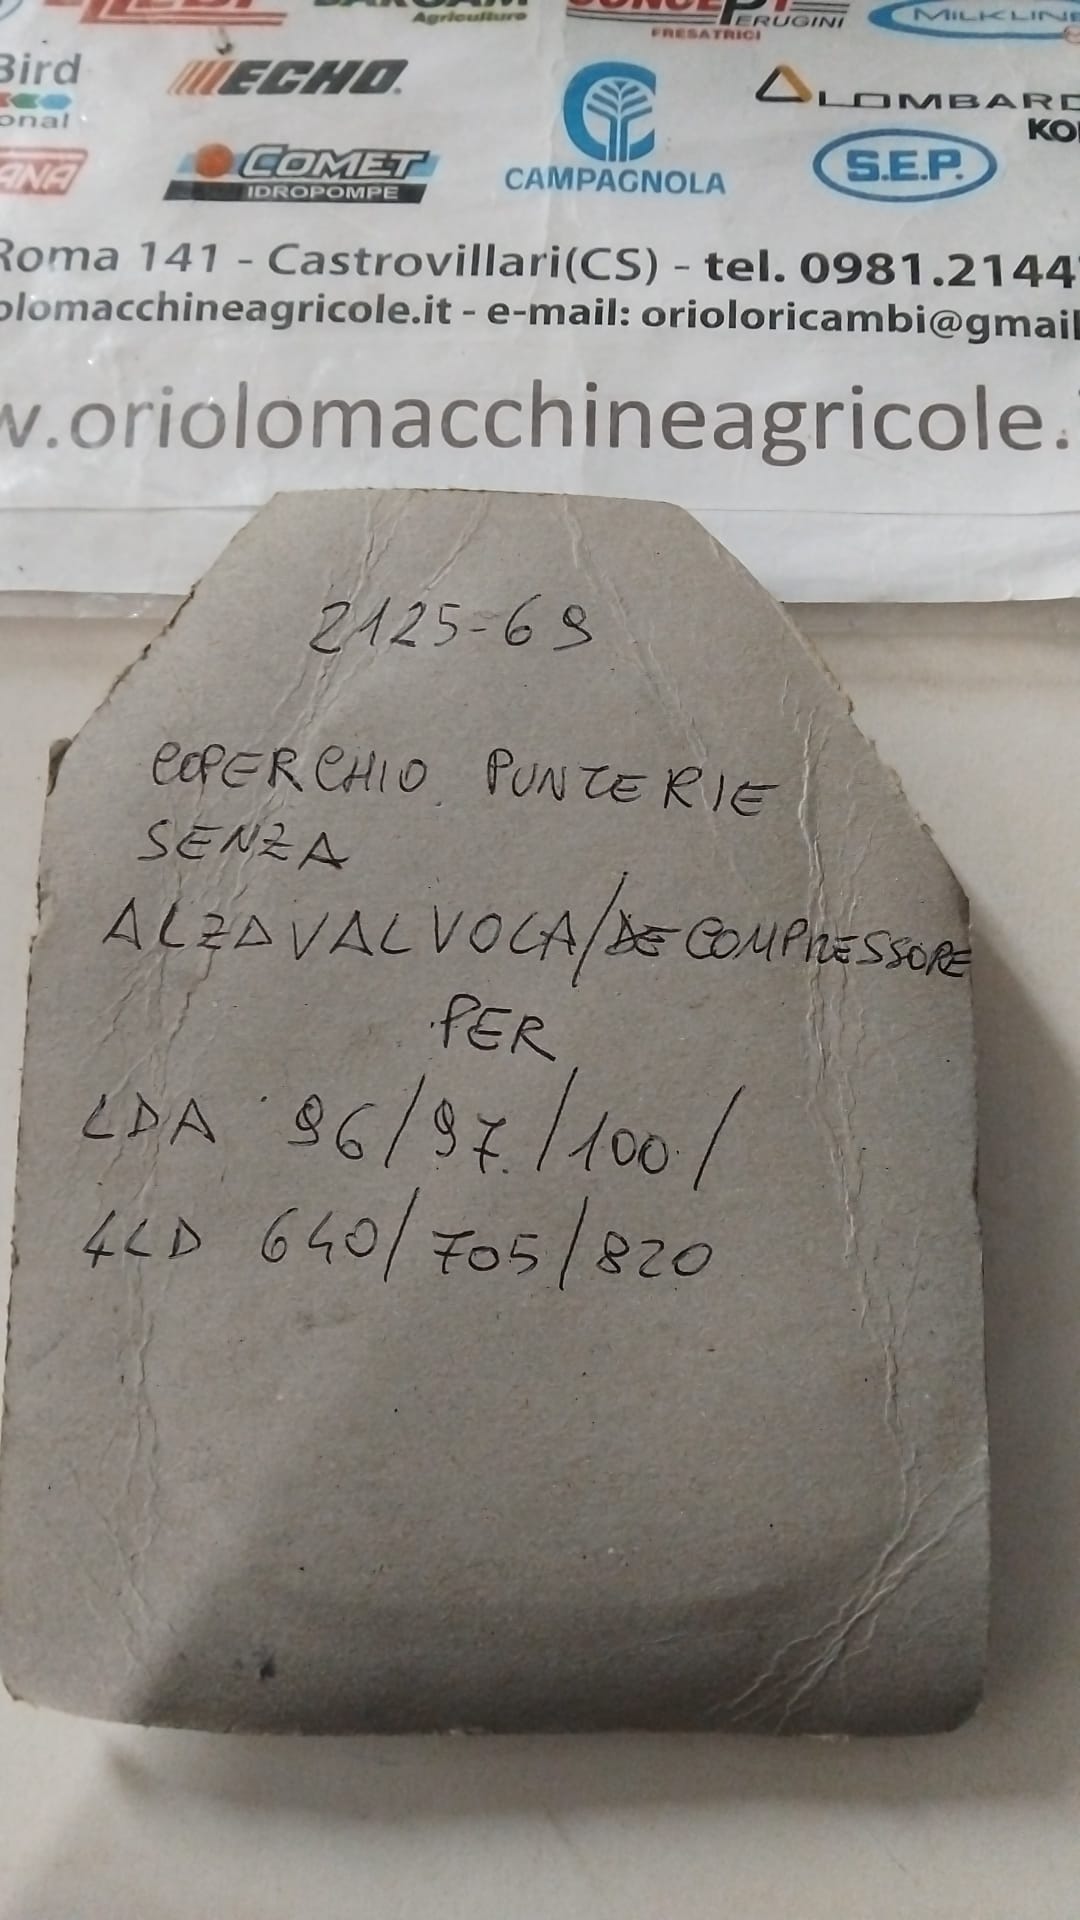 Agriculture
PERUGINI
FRESATRICI
MILKLINE
Bird
onal
ECHO
LOMBARD
KO
ANA
COMET
IDROPOMPE
CAMPAGNOLA
S.E.P.
Roma 141 - Castrovillari(CS) - tel. 0981.2144
olomacchineagricole.it - e-mail: orioloricambi@gmail
w.oriolomacchineagricole.
2125-69
COPERCHIO PUNTERIE
SENZA
ALZAVALVOLA/DECOMPRESSORE
PER
LDA 96/97/100/
4LD 640/705/820